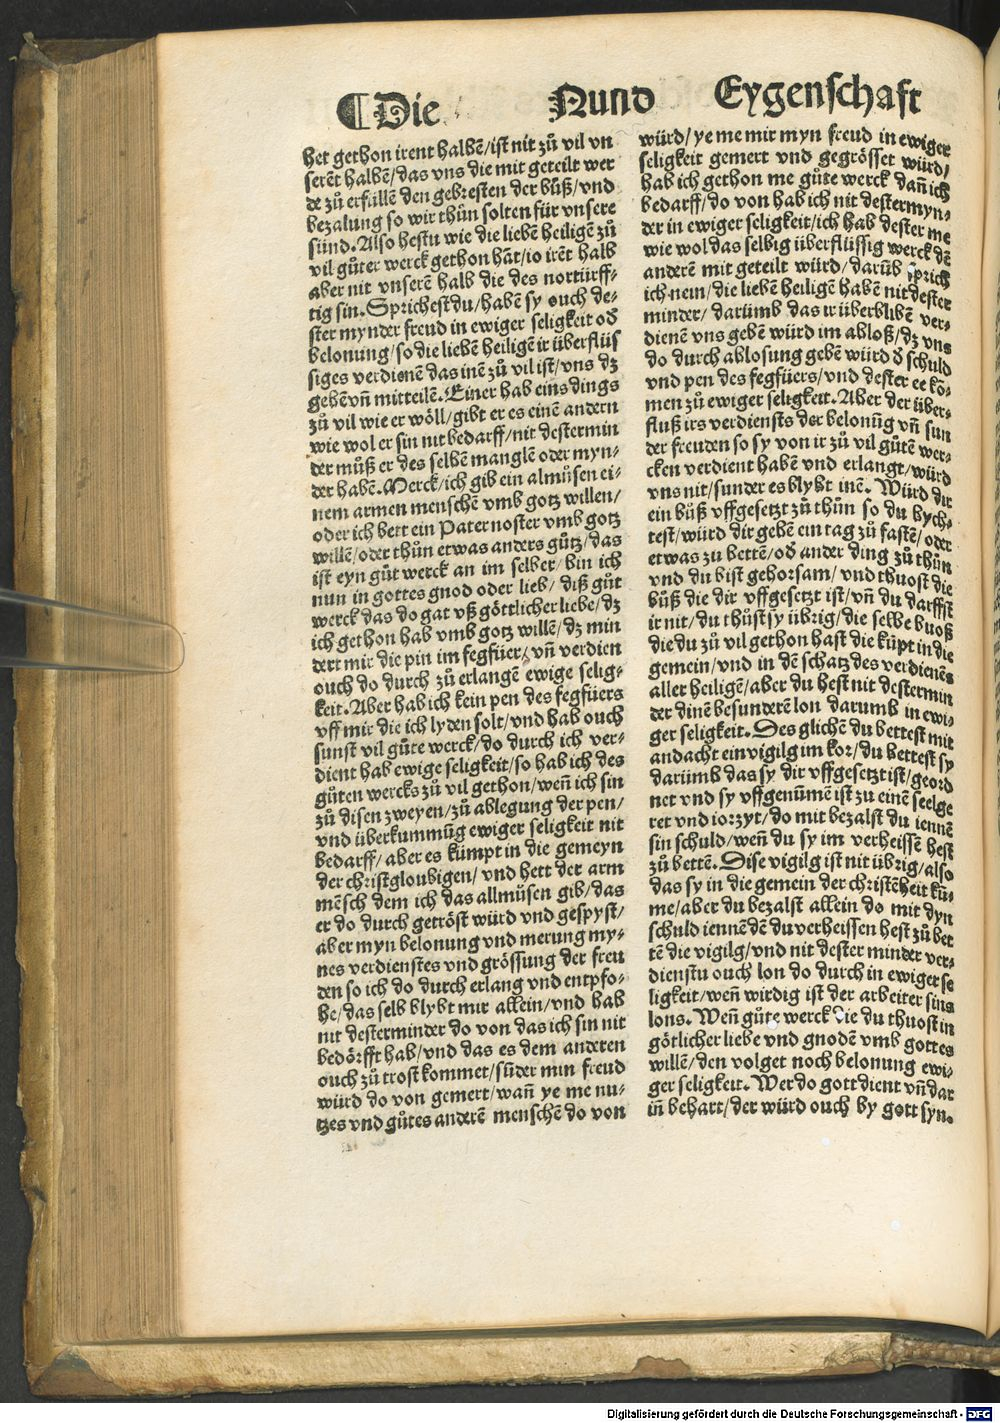 ¶Die Nund Eygenschaft
het gethon irent halbē/ist nit zů vil vn
serēt halbē/das vns die mit geteilt wer
de zů erfüllē den gebresten der bůß/vnd
bezalung so wir thůn solten für vnsere
sünd. Also hestu wie die liebē heiligē zů
vil gůter werck gethon hāt/io irēt halb
aber nit vnserē halb die des nortürff⸗
tig sin. Sprichest du/habē sy ouch de⸗
ster mynder freud in ewiger seligkeit oð
belonung/so die liebē heiligē ir überflüs
siges verdienē das inē zů vil ist/vns dz
gebē vñ mitteilē. Einer hab eins dings
zů vil wie er wöll/gibt er es einē andern
wie wol er sin nit bedarff/nit destermin
der můß er des selbē manglē oder myn⸗
der habē. Merck/ich gib ein almůsen ei⸗
nem armen menschē vmb gotz willen/
oder ich bett ein Pater noster vmb gotz
willē/oder thůn etwas anders gůtz/das
ist eyn gůt werck an im selber/bin ich
nun in gottes gnod oder lieb/diß gůt
werck das do gat vß göttlicher liebe/dz
ich gethon hab vmb gotz willē/dz min
dert mir die pin im fegfüer/vñ verdien
ouch do durch zů erlangē ewige selig⸗
keit. Aber hab ich kein pen des fegfüers
vff mir die ich lyden solt/vnd hab ouch
sunst vil gůte werck/do durch ich ver⸗
dient hab ewige seligkeit/so hab ich des
gůten wercks zů vil gethon/weñ ich sin
zů disen zweyen/zů ablegung der pen/
vnd überkummūg ewiger seligkeit nit
bedarff/aber es kümpt in die gemeyn
der christgloubigen/vnd hett der arm
mēsch dem ich das allmůsen gib/das
er do durch getröst würd vnd gespyst/
aber myn belonung vnd merung my⸗
nes verdienstes vnd grössung der freu
den so ich do durch erlang vnd entpfo⸗
he/das selb blybt mir allein/vnd hab
nit desterminder do von das ich sin nit
bedörfft hab/vnd das es dem anderen
ouch zů trost kommet/sūder min freud
würd do von gemert/wañ ye me nu⸗
tzes vnd gůtes anderē menschē do von
würd/ye me mir myn freud in ewiger
seligkeit gemert vnd gegrösset würd/
hab ich gethon me gůte werck dañ ich
bedarff/do von hab ich nit dester myn⸗
der in ewiger seligkeit/ich hab dester me
wie wol das selbig überflüssig werck dē
anderē mit geteilt würd/darūb sprich
ich nein/die liebē heiligē habē nit dester
minder/darümb das ir überblibē ver⸗
dienē vns gebē würd im abloß/dz vns
do durch ablosung gebē würd ð schuld
vnd pen des fegfüers/vnd dester ee kō⸗
men zů ewiger seligkeit. Aber der über⸗
fluß irs verdiensts der belonūg vñ sun
der freuden so sy von ir zů vil gůtē wer⸗
cken verdient habē vnd erlangt/würd
vns nit/sunder es blybt inē. Würd dir
ein bůß vffgesetzt zů thůn so du bych⸗
test/würd dir gebē ein tag zů fastē/oder
etwas zu bettē/oð ander ding zů thůn
vnd du bist gehorsam/vnd thuost die
bůß die dir vffgesetzt ist/vñ du darffst
ir nit/du thůst sy übrig/die selbe buoß
die du zů vil gethon hast die kūpt in die
gemein/vnd in dē schatz des verdienēs
aller heiligē/aber du hest nit destermin
der dinē besunderē lon darumb in ewi⸗
ger seligkeit. Des glichē du bettest mit
andacht ein vigilg im kor/du bettest sy
darümb das sy dir vffgesetzt ist/geord
net vnd sy vffgenūmē ist zu einē seelge
ret vnd iorzyt/do mit bezalst du iennē
sin schuld/weñ du sy im verheissē hest
zů bettē. Dise vigilg ist nit übrig/also
das sy in die gemein der christēheit kū⸗
me/aber du bezalst allein do mit dyn
schuld iennē dē du verheissen hest zů bet
tē die vigilg/vnd nit dester minder ver⸗
dienstu ouch lon do durch in ewiger se
ligkeit/weñ wirdig ist der arbeiter sins
lons. Weñ gůte werck die du thuost in
götlicher liebe vnd gnodē vmb gottes
willē/den volget noch belonung ewi⸗
ger seligkeit. Wer do gott dient vñ dar
iñ behart/der würd ouch by gott syn.
Digitalisierung gefördert durch die Deutsche Forschungsgemeinschaft - DFG